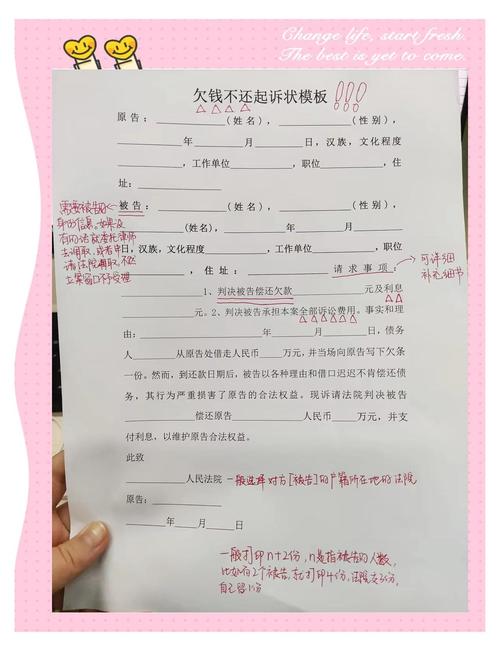 Change life, start fresh.
The best is yet to come.
欠钱不还起诉状模板!!!
原告：__________(姓名)，__________(性别)，
__________年______月______日，汉族，文化程度
__________,工作单位__________,职位______，住
址:__________
被告：__________(姓名)，__________(性别)，
(姓名)，__________年______月______日
日，汉族，文化程度______，工作单位________，职位____
，住址：__________ 请求事项：
可详细
补充细节
需要被告的
身份信息。如果没
有的话就委托律师
去调取，或者申
请法院调取，不然
立案窗口不受理
1、判决被告偿还欠款__________元及利息
____元。2、判决被告承担本案全部诉讼费用。事实和理
由：__________年______月______日，债务
人______从原告处借走人民币____万元，并当场向原告写下欠条
一份。然而，到还款日期后，被告以各种理由和借口迟迟不肯偿还债
务，其行为严重损害了原告的合法权益。现诉请法院判决被告
__________偿还原告__________人民币____万元，并支
付利息，以维护原告合法权益。
此致
________人民法院 一般选择对方[被告]的户籍所在地的法院
原告：__________
______年____月____日
一般打印n+2份，n是指被告的人数，
比如有2个被告，就打印4份，法院交3份，
自己留1份